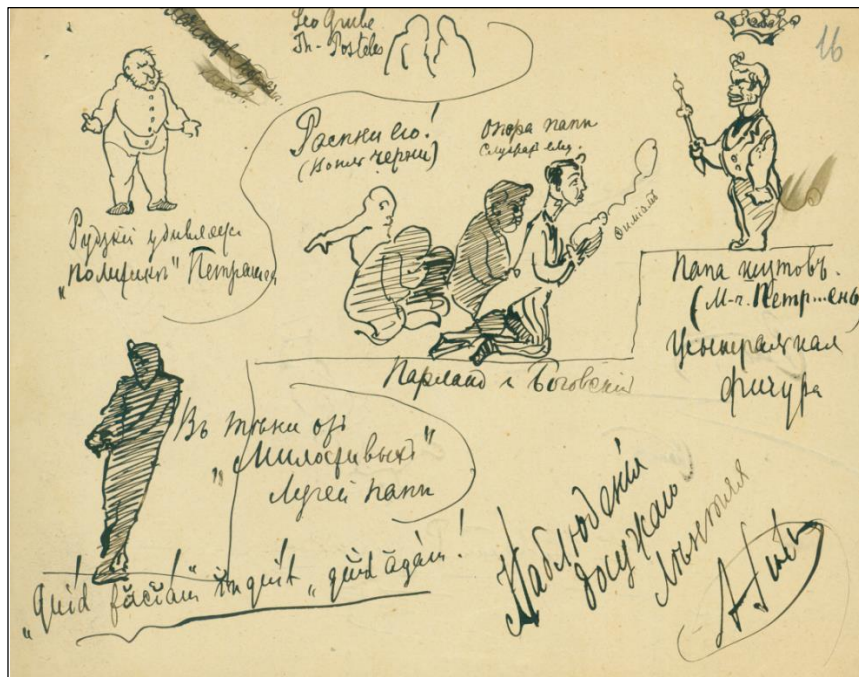 16
Leo Grube
Th. Posteles
Распни его!
(Вопль черни)
опора папы
фиміамъ
Рудзкій удивляется
"политикѣ"
папа шутовъ.
(М-r. Петр...ень)
Центральная
фигура
Парланд и Боговскій
Въ тѣни отъ
"Милостивыхъ"
лучей папы
"Quid faciam" inquit "quid agam!
Наблюденія
досужаго
лѣнтяя